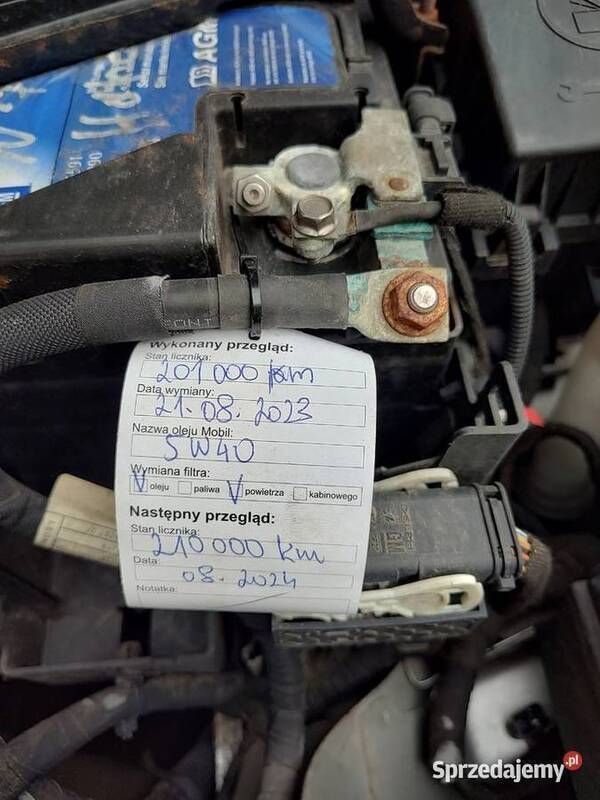 AGM
Wykonany przegląd:
Stan licznika:
201 000 km
Data wymiany:
21.08.2023
Nazwa oleju Mobil:
5W40
Wymiana filtra:
V oleju paliwa V powietrza kabinowego
Następny przegląd:
Stan licznika:
210000 km
Data:
08.2024
Notatka:
GM
Sprzedajemy.pl